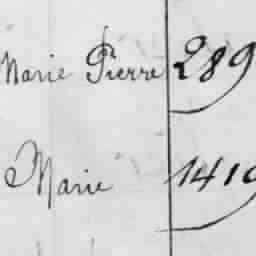 Marie Pierre 289
Marie 1419